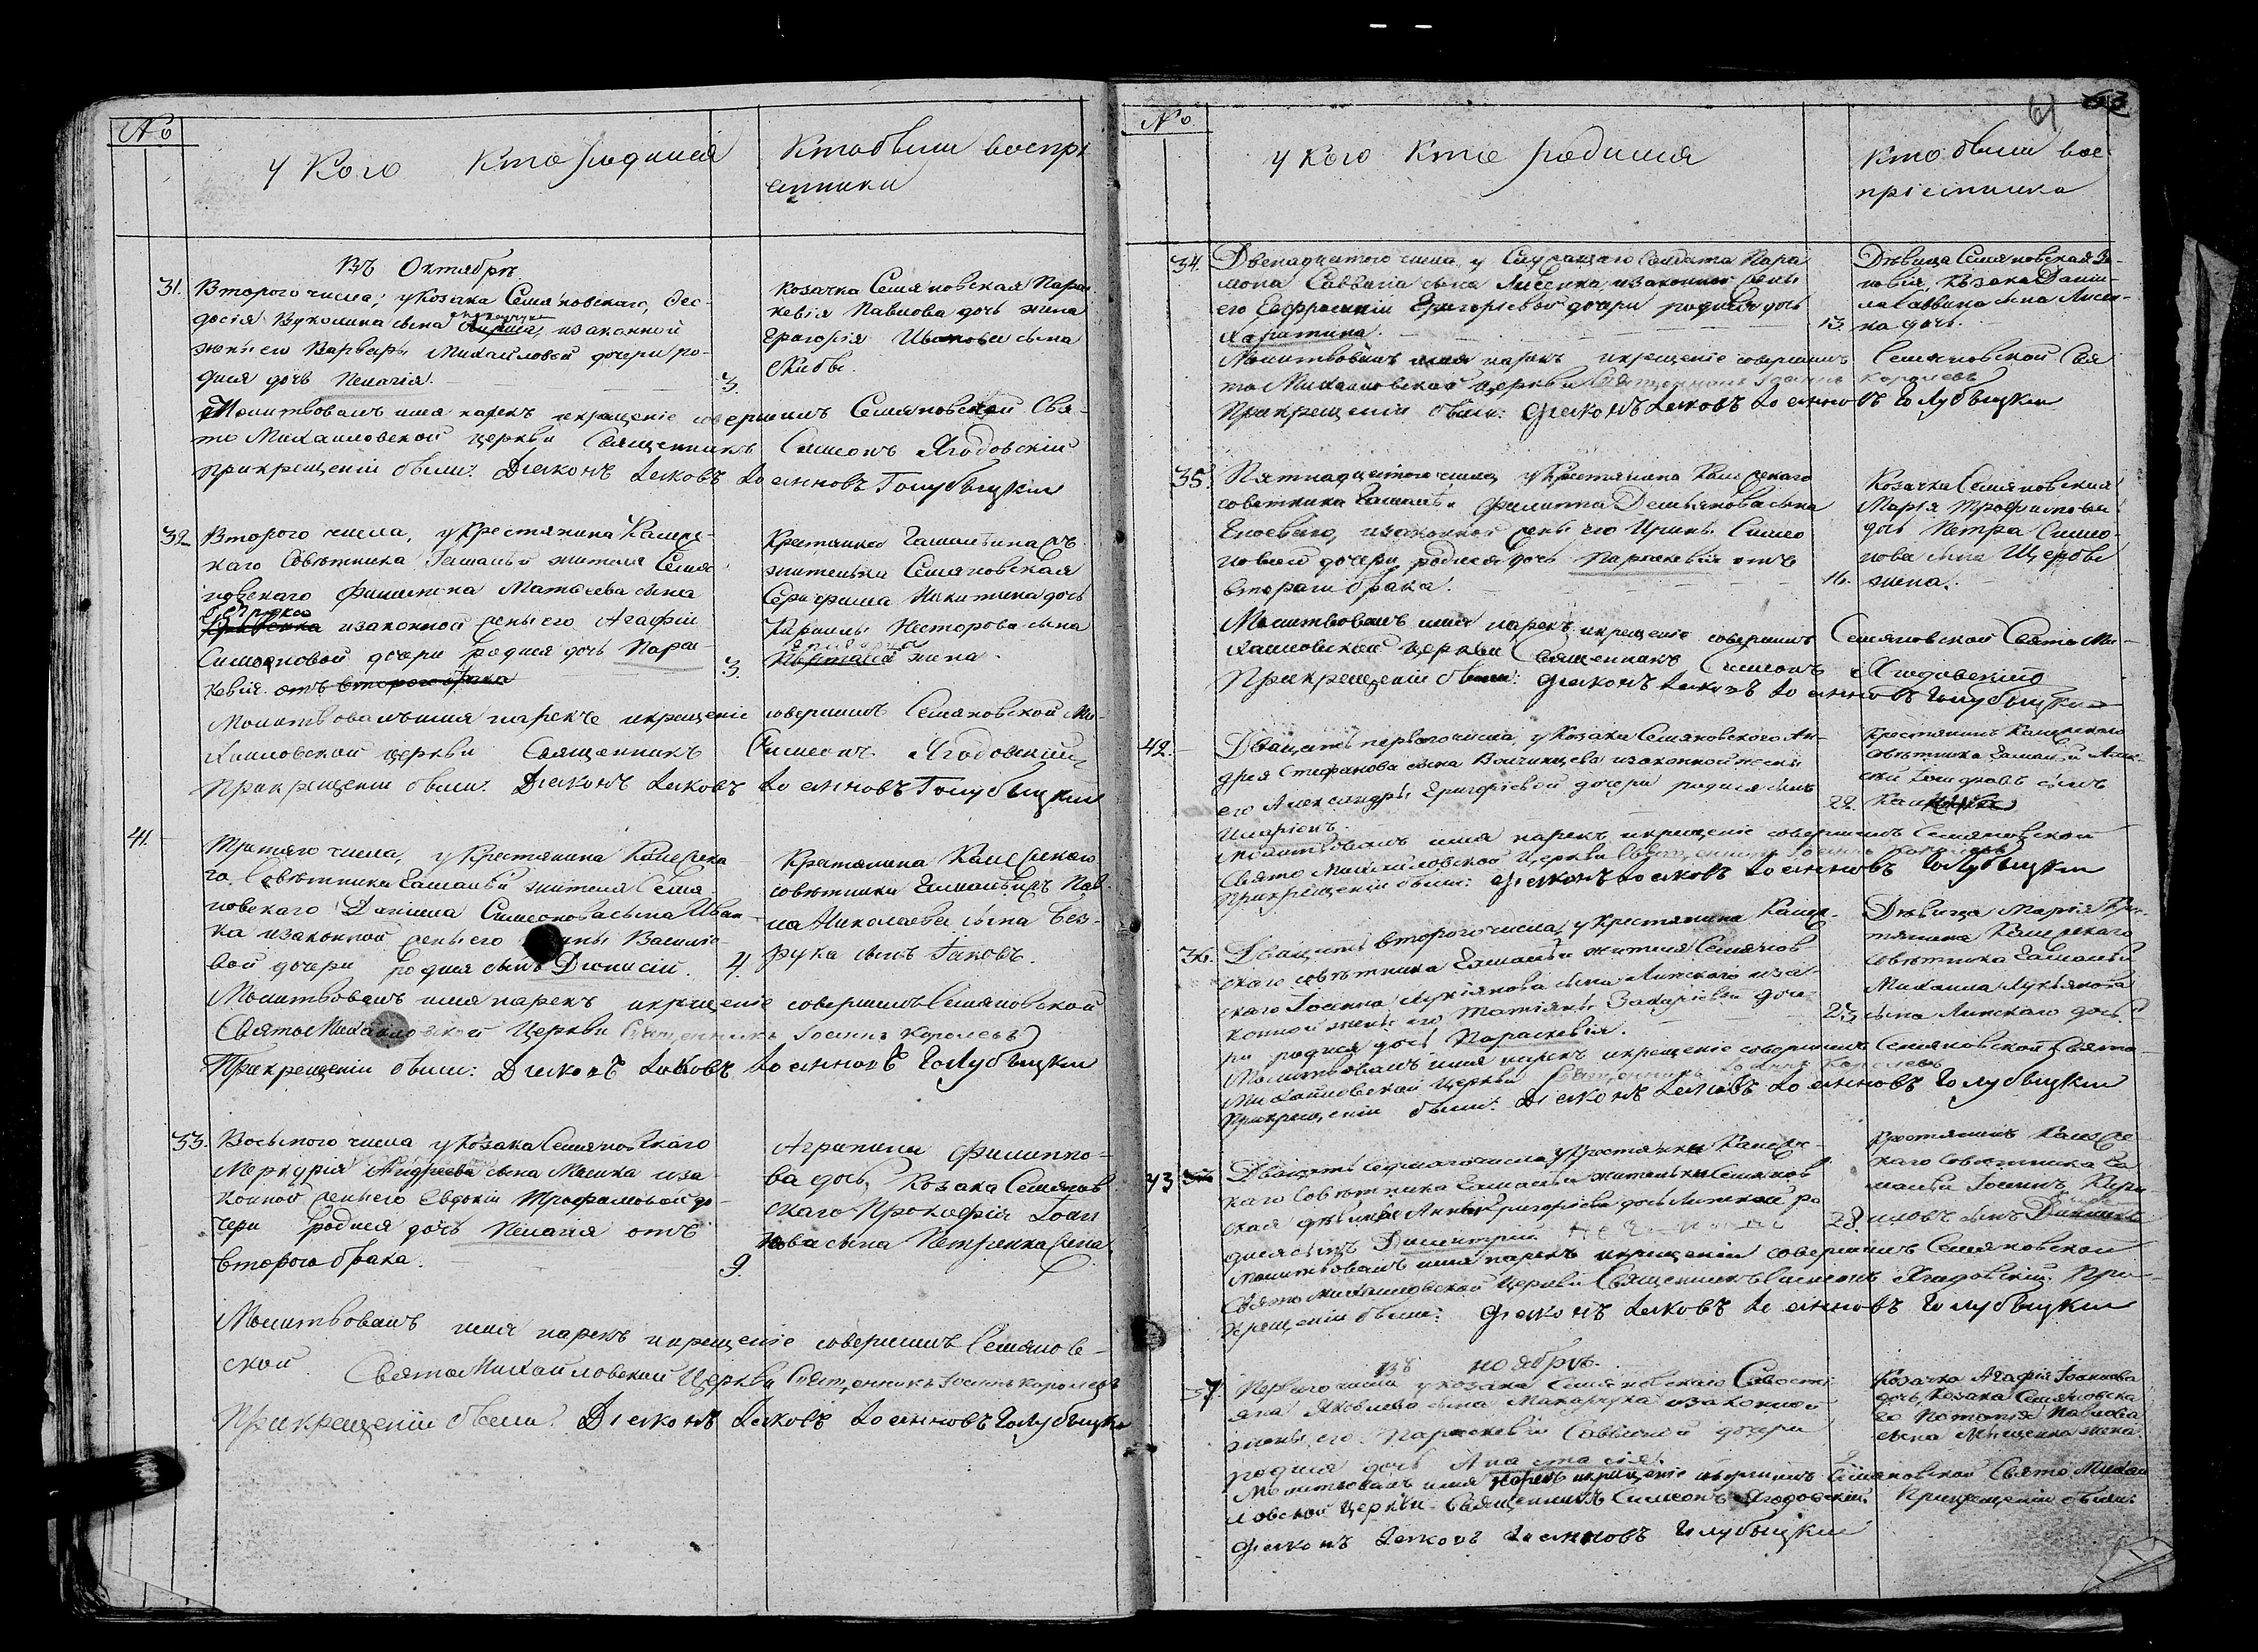 №
У Кого Кто родился
Кто были воспрі
емники
Въ Октябрѣ
31. Второго числа, у Козака Семяновскаго, Ѳео-
досія Вуколина сына изаконной
жены его Варвары Михайловой дочери ро-
дися дочь Пелагія.
3.
Козачка Семяновская Парас
кевія Павлова дочь жена
Григорія Иванова сына
Скибы.
Молитвовалъ имя нарекъ икрещеніе совершилъ Семяновской Свя-
то Михаиловской церкви Священникъ Симеонъ Ягодовскій
прикрещеніи были: Дiаконъ Iаковъ Iоанновъ Голубицкiй
32. Второго числа, у Крестянина Камерс-
каго Совѣтника Гамалѣи жителя Семя-
новскаго Филипа Матвеева сына
изаконной жены его Агафіи
Симоновой дочери родися дочь Парас-
кевія. отъ второго брака
3.
Крестянка Гамалѣина съ
жителька Семяновская
Никитина дочь
Кирилы Несторова сына
жена.
Молитвовалъ имя нарекъ икрещеніе совершилъ Семяновской Ми-
хаиловской церкви Священникъ Симеонъ Ягодовскій
Прикрещеніи были: Дiаконъ Iаковъ Iоанновъ Голубицкiй
41. Третяго числа, у Крестянина Камерска
го Совѣтника Гамалѣи жителя Семя
новскаго Даніила Симеонова сына Иван
ка изаконной жены его Василіе
вой дочери родися сынъ Діонисій.
4.
Крестянина Камерскаго
совѣтника Гамалѣи Пав
ла Николаева сына Без-
рука сынъ Іаковъ.
Молитвовалъ имя нарекъ икрещеніе совершилъ Семяновской
Свято Михайловской Церкви Священникъ Іоаннъ Королевъ
Прикрещеніи были: Дiаконъ Iаковъ Iоанновъ Голубицкiй
33. Восьмого числа у Козака Семяновскаго
Меркурія Андреева сына Машка иза
конной жены его Евдокіи Трофимовой до
чери родися дочь Пелагія отъ
второго брака.
9.
Агрипина Филиппо-
ва дочь, Козака Семянов
скаго Прокофія Іоан
нова сына Петренка жена.
Молитвовалъ имя нарекъ икрещеніе совершилъ Семянов-
ской Свято Михайловской Церкви Священникъ Іоаннъ Королевъ
Прикрещеніи были: Дiаконъ Iаковъ Iоанновъ Голубицкiй
61
№
У Кого Кто родился
Кто были вос
пріемника
34. Двенадцятого числа у Служащаго Солдата Пара
мона Саввина сына Лисенка изаконной жены
его Евфросиніи Григоріевой дочери родися дочь
Харитина.
13.
Дѣвица Семяновская
Козака Дании-
ла Саввина сына Лисен-
ка дочь.
Молитвовалъ имя нарекъ икрещеніе совершилъ Семяновской Свя
то Михаиловской Церкви Священникъ Іоаннъ Королевъ
Прикрещеніи были: Дiаконъ Iаковъ Iоанновъ Голубицкiй
35. Пятнадцятого числа у Крестянина Камерскаго
советника Гамалѣи Филиппа Демьянова сына
изаконной жены его Ирины Симео
новой дочери родися дочь Параскевія отъ
второго брака.
16.
Козачка Семяновская
Марія Трофимова
дочь Петра Симео-
нова сына Щербы
жена.
Молитвовалъ имя нарекъ икрещеніе совершилъ Семяновской Свято Ми-
хаиловской Церкви Священникъ Симеонъ Ягодовскій
Прикрещеніи были: Дiаконъ Iаковъ Iоанновъ Голубицкiй
42. Двацять первого числа, у Козака Семяновского Ан-
дрея Стефанова сына изаконной жены
его Александры Григоріевой дочери родися сынъ
Иларіонъ.
22.
Крестянинъ Камерскаго
Совѣтника Гамалѣи Алек-
сѣй сынъ
Молитвовалъ имя нарекъ икрещеніе совершилъ Семяновской
Свято Михайловской Церкви Священникъ Іоаннъ Королевъ
Прикрещеніи были: Дiаконъ Iаковъ Iоанновъ Голубицкiй
36. Двацять второго числа, у Крестянина Камер-
скаго совѣтника Гамалѣи жителя Семянов-
скаго Іоанна Лукіянова сына Линскаго иза-
конной жены его Татіяны Захаріевой доче-
ри родися дочь Параскевія.
23.
Дѣвица Марія Крес-
тянина Камерскаго
совѣтника Гамалѣи
Михаила Лукьянова
сына Линскаго дочь.
Молитвовалъ имя нарекъ икрещеніе совершилъ Семяновской Свято-
Михайловской Церкви Священникъ Іоаннъ Королевъ
Прикрещеніи были: Дiаконъ Iаковъ Iоанновъ Голубицкiй
43 Двацять седмаго числа у Крестянки Камерс-
каго Совѣтника Гамалѣи жительки Семянов
ская дѣвицы Анны Григоріевы дочь ро
дися сынъ Димитрій
28.
Крестянинъ Камерс-
каго Совѣтника Га
малѣи Іоаннъ Кири-
ловъ сынъ
Молитвовалъ имя нарекъ икрещеніи совершилъ Семяновской
Свято Михаиловской Церкви Священникъ Симеонъ Ягодовскій При
крещеніи были: Дiаконъ Iаковъ Iоанновъ Голубицкiй
въ ноябрѣ.
37. Первого числа у козака Семяновскаго Савасті
яна Яковлева сына Макарчука изаконной
жены его Параскевіи Саввиной дочери
родися дочь Анастасія.
2.
Козачка Агафія Іоаннова
дочь, Козака Семяновска
го Потапія Павлова
сына Мищенка жена.
Молитвовалъ имя нарекъ икрещеніе совершилъ Семяновской Свято Михаи
ловской Церкви Священникъ Симеонъ Ягодовскій Прикрещеніи были:
Дiаконъ Iаковъ Iоанновъ Голубицкiй